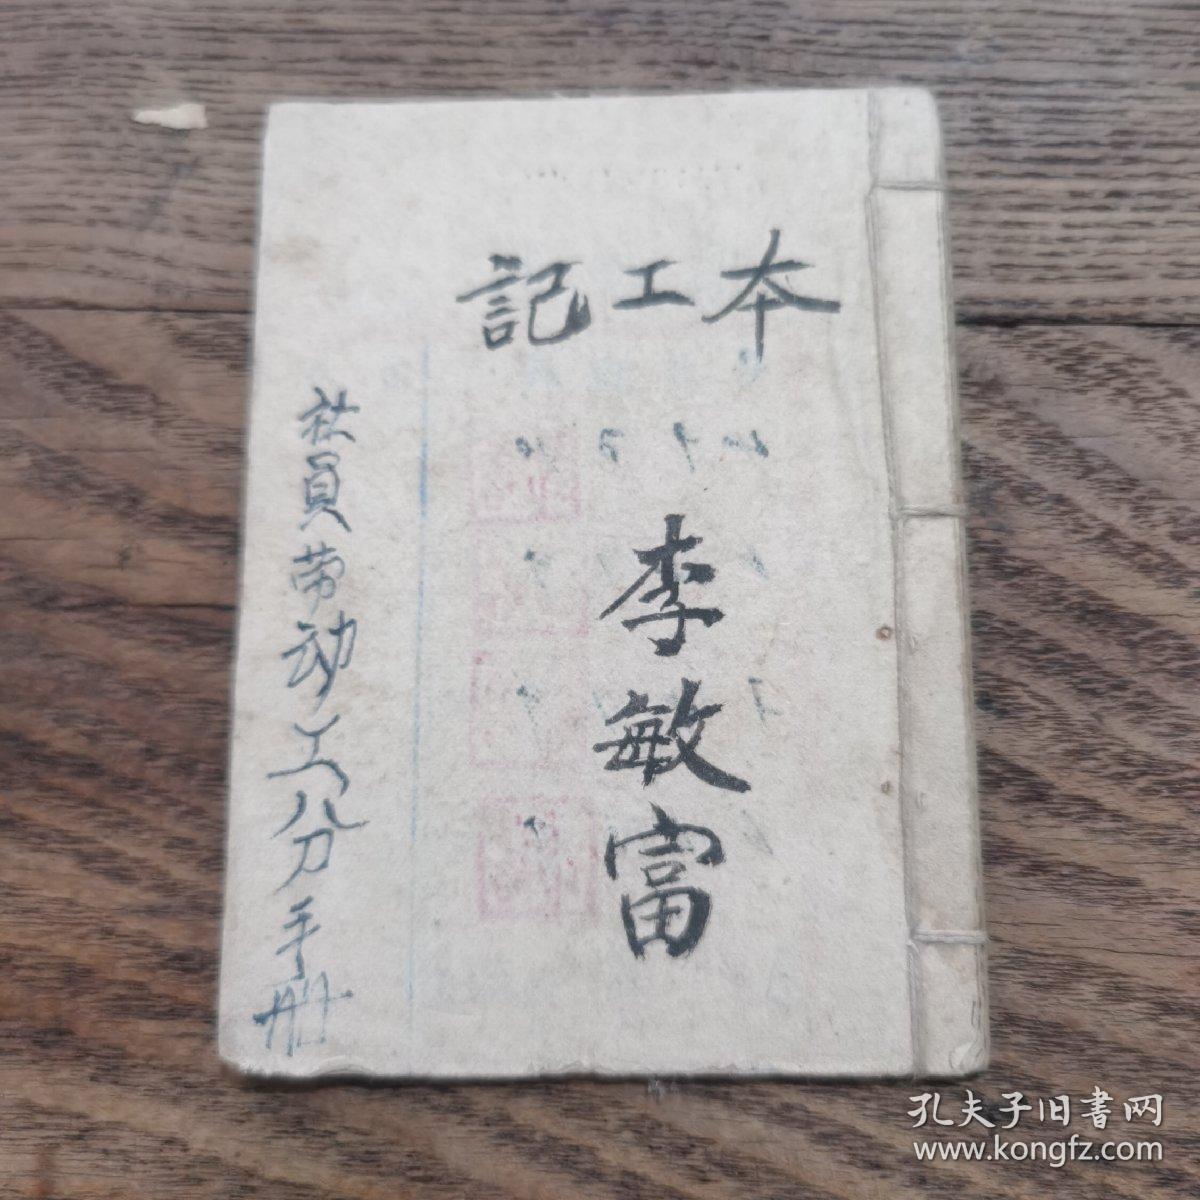 本工記
李敏富
社員劳动工分手册
孔夫子旧書网
www.kongfz.com